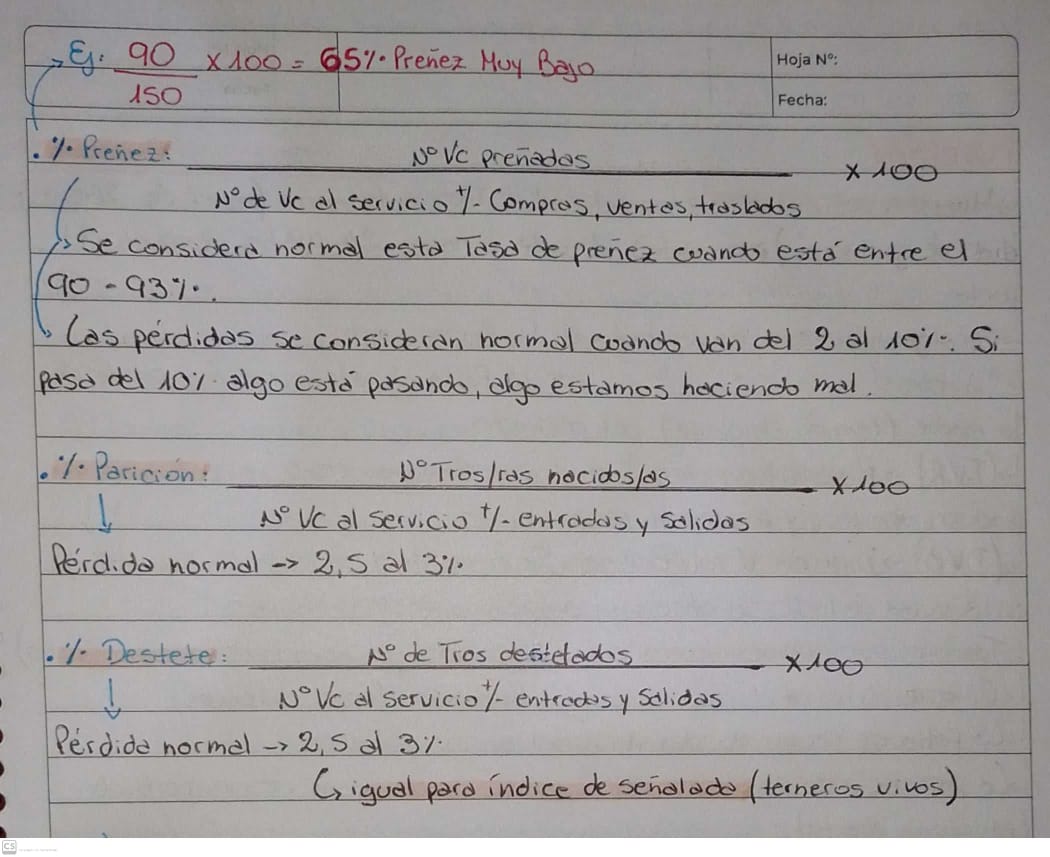 Ej: 90 x 100 = 65% Preñez Muy Bajo
150
Hoja Nº:
Fecha:
. % Preñez: Nº Vc preñadas x 100
Nº de Vc al servicio +/- Compras, ventas, traslados
Se considera normal esta Tasa de preñez cuando está entre el
90 - 93%.
Las pérdidas se consideran normal cuando van del 2 al 10%. Si
pasa del 10% algo está pasando, algo estamos haciendo mal.
. % Parición: Nº Tros/ras nacidos/as x 100
Nº Vc al servicio +/- entradas y salidas
Pérdida normal -> 2,5 al 3%.
. % Destete: Nº de Tros destetados x 100
Nº Vc al servicio +/- entradas y salidas
Pérdida normal -> 2,5 al 3%.
igual para índice de señalada (terneros vivos)
CS